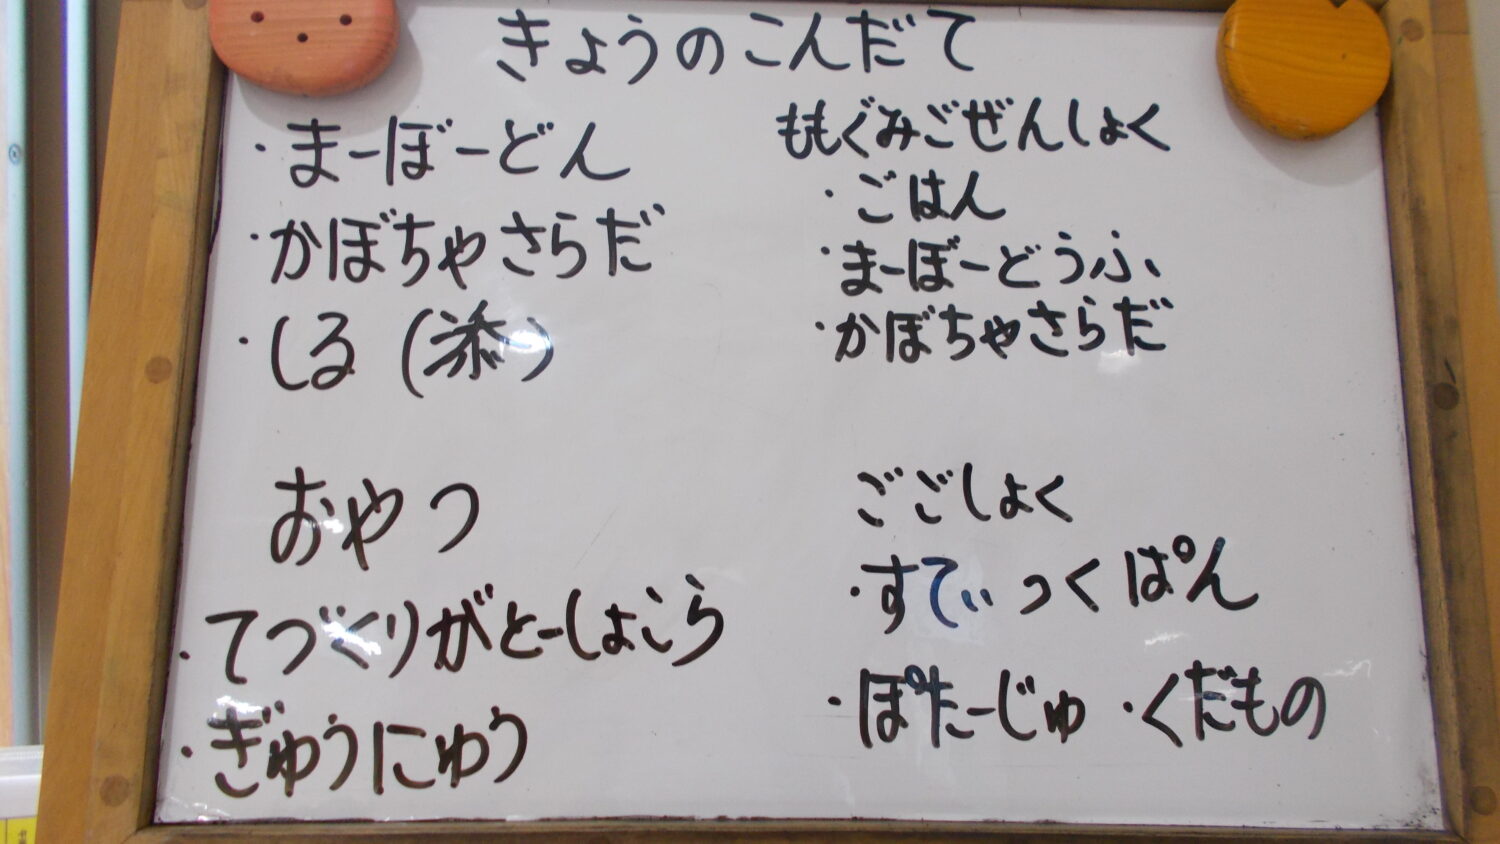 きょうのこんだて
・まーぼーどん
・かぼちゃさらだ
・しる(添)
おやつ
・てづくりがとーしょこら
・ぎゅうにゅう
ももぐみごぜんしょく
・ごはん
・まーぼーどうふ
・かぼちゃさらだ
ごごしょく
・すてぃっくぱん
・ぽたーじゅ ・くだもの